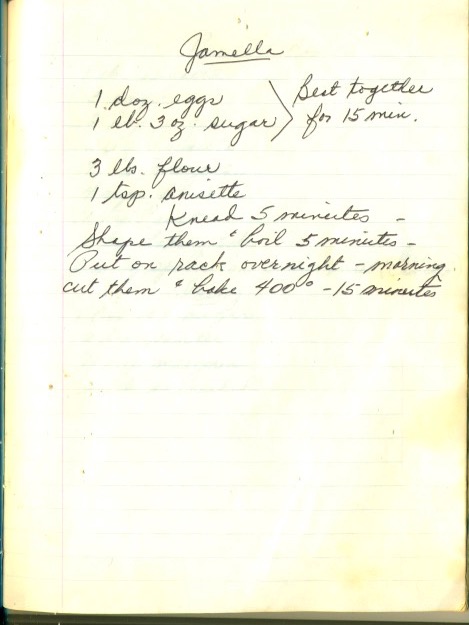 Jamella
1 doz. eggs
1 lb. 3 oz. sugar
Beat together
for 15 min.
3 lbs. flour
1 tsp. anisette
Knead 5 minutes -
Shape them & boil 5 minutes -
Put on rack overnight - morning
cut them & bake 400° - 15 minutes